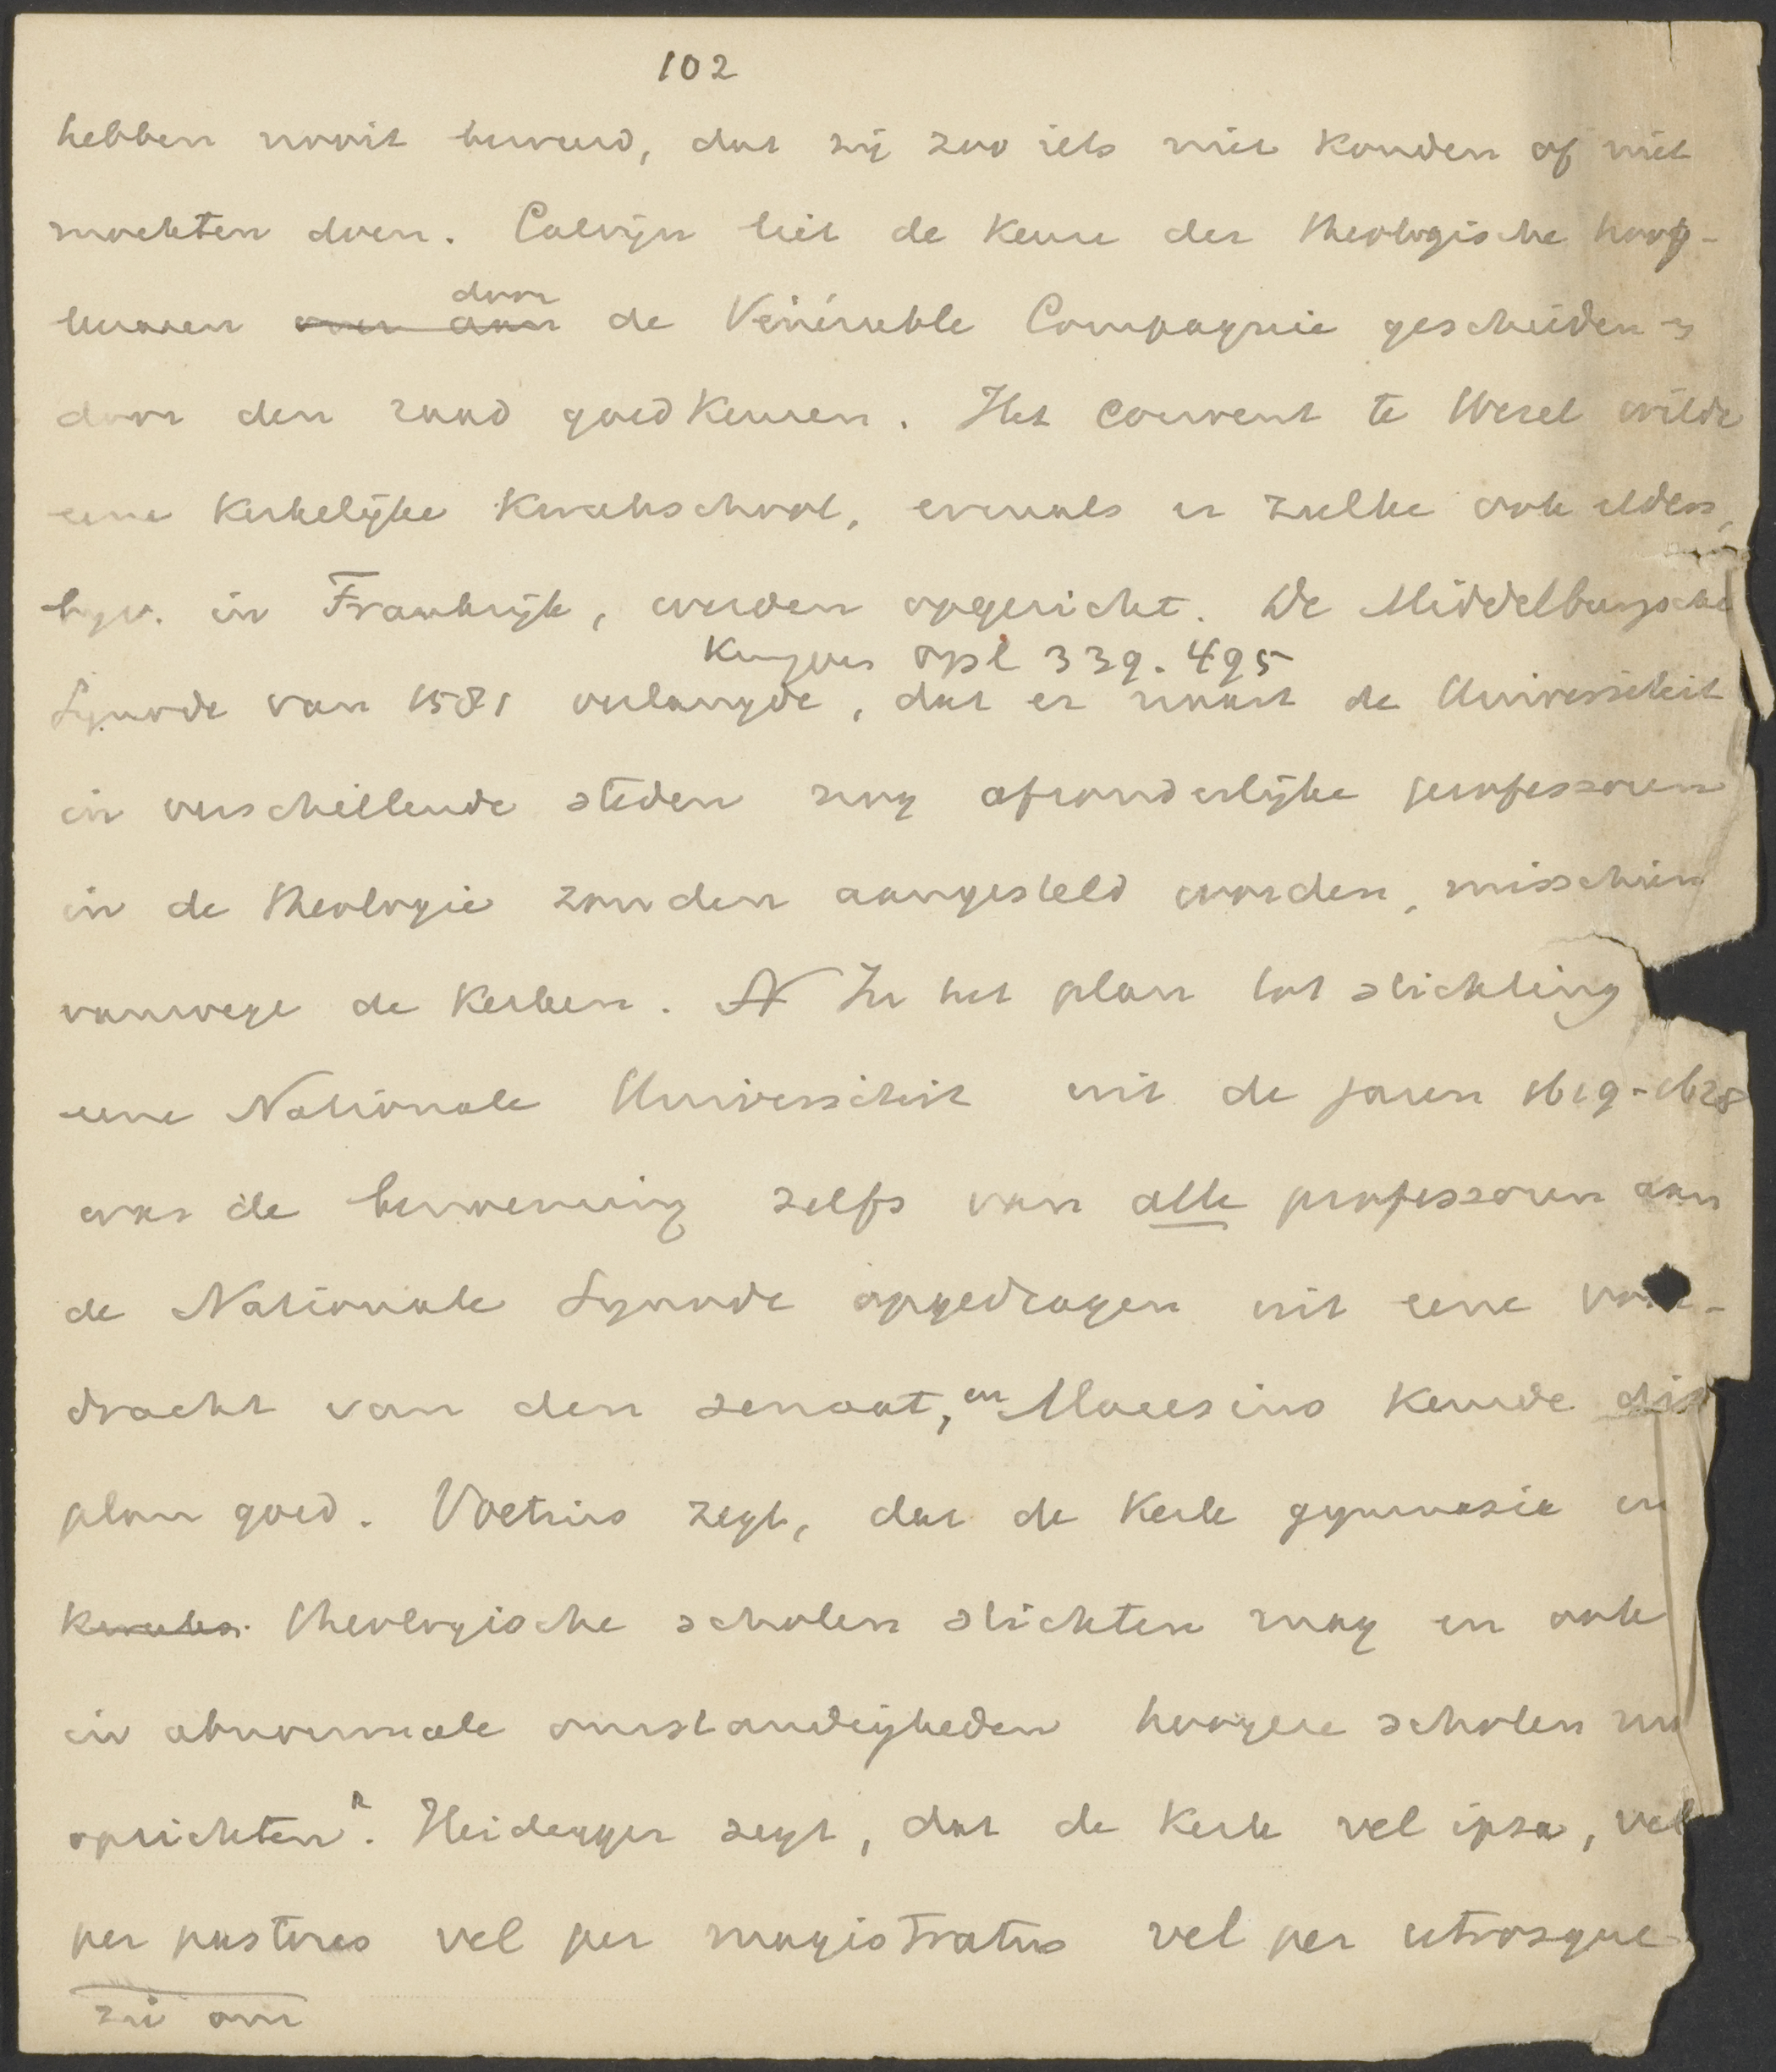 102
hebben nooit beweerd, dat zij zoo iets niet konden of niet
mochten doen. Calvijn liet de keuze der theologische hoog-
leeraren ~~over aan~~ door de Vénérable Compagnie geschieden en
door den raad goedkeuren. Het Convent te Wesel wilde
eene kerkelijke kweekschool, evenals er zulke ook elders,
bijv. in Frankrijk, werden opgericht. De Middelburgsche
Kuyper opst 339. 495
Synode van 1581 verlangde, dat er naast de Universiteit
in verschillende steden nog afzonderlijke professoren
in de theologie zouden aangesteld worden, misschien
vanwege de kerken. In het plan tot stichting
eene Nationale Universiteit uit de jaren 1619-1628
was de benoeming zelfs van alle professoren aan
de Nationale Synode opgedragen uit eene voor-
dracht van den senaat, en Maresius keurde dit
plan goed. Voetius zegt, dat de kerk gymnasia en
theologische scholen stichten mag en ook
in abnormale omstandigheden hoogere scholen
oprichten. Heidegger zegt, dat de kerk vel ipsa, vel
per pastores vel per magistratus vel per utrosque
zie om